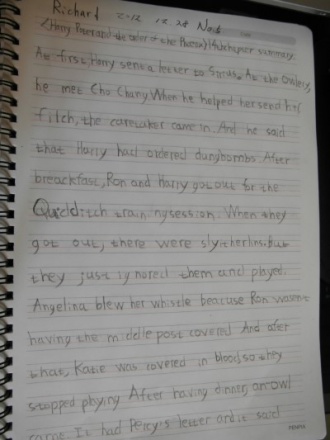 Richard 2-12 12.28 Neds
<Harry Potter and the order of the Phoenix> 14th chapter summary.
At first, Harry sent a letter to Sirius. At the Owlery,
he met Cho Chang. When he helped her send his
filch, the caretaker came in. And he said
that Harry had ordered dungbombs. After
breackfast, Ron and Harry got out for the
Quidditch training session. When they
got out, there were slytherins. But
they just ignored them and played.
Angelina blew her whistle beacuse Ron wasn't
having the middle post covered. And after
that, Katie was covered in blood so they
stopped phying. After having dinner, an owl
came. It had Percy's letter and it said